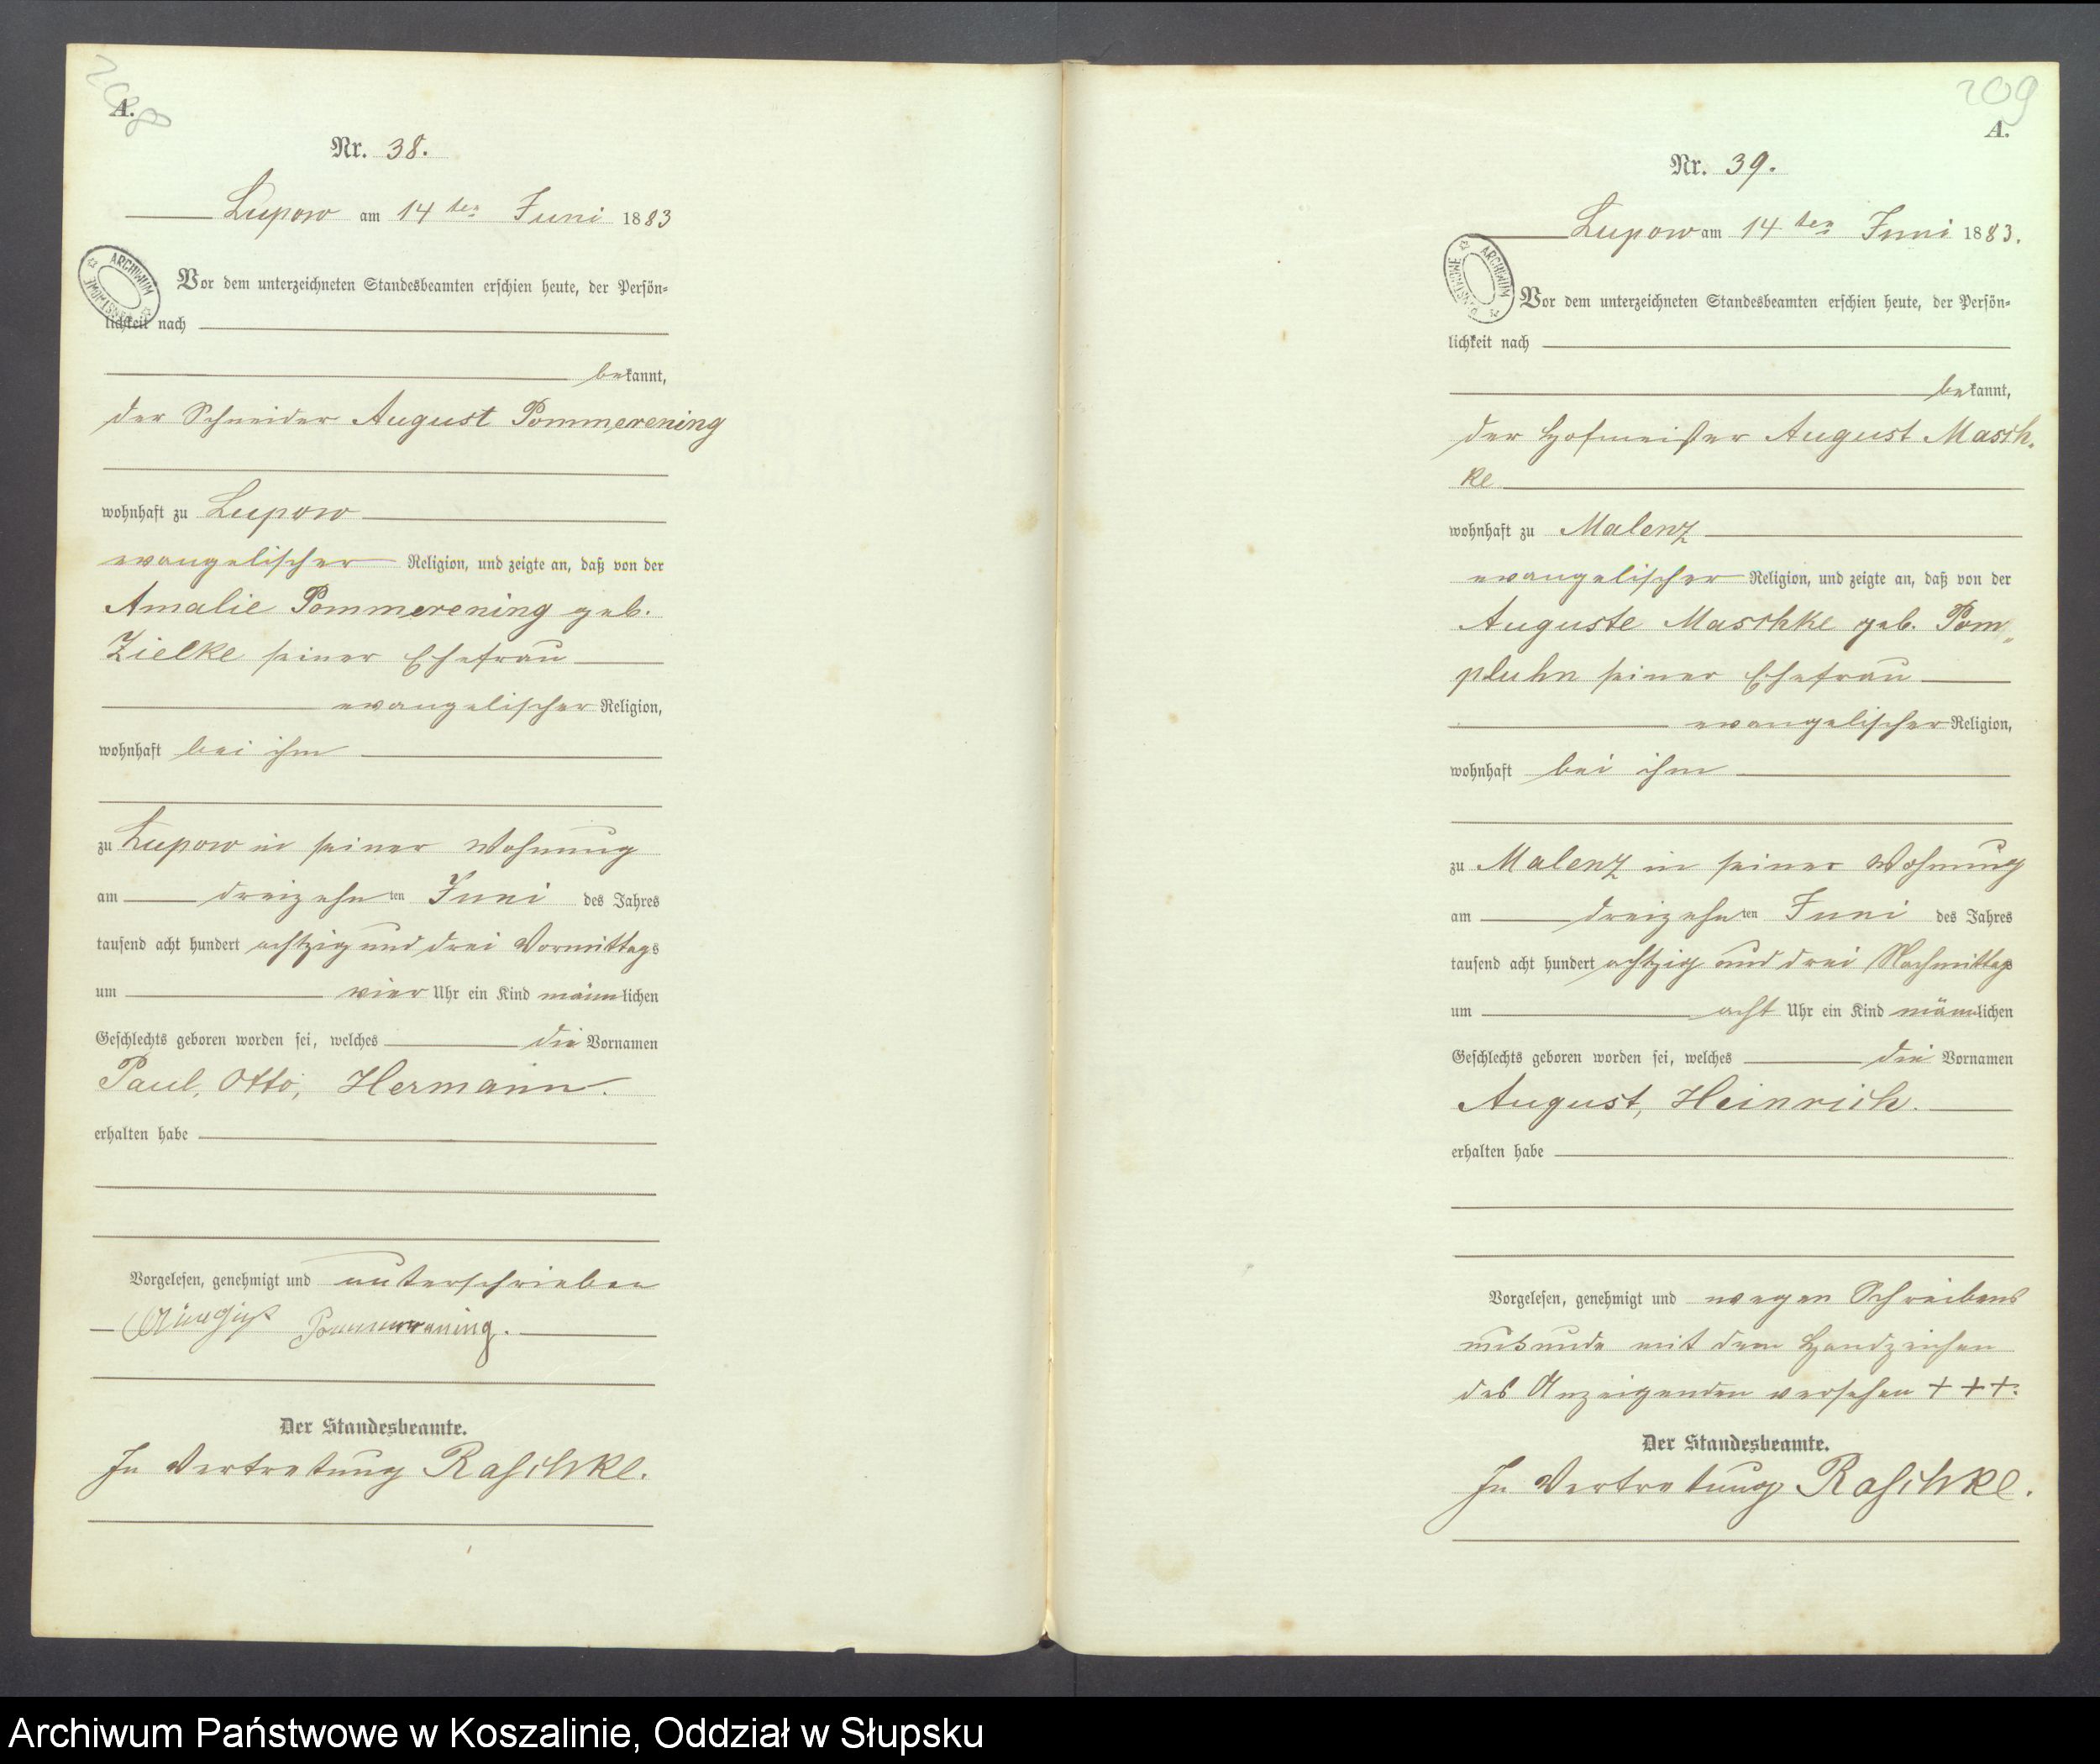 208
A.
Nr. 38.
Lupow am 14ten Juni 1883
ARCHIWUM PAŃSTWOWE
Vor dem unterzeichneten Standesbeamten erschien heute, der Persön-
lichkeit nach
bekannt,
der Schneider August Pommerening
wohnhaft zu Lupow
evangelischer Religion, und zeigte an, daß von der
Amalie Pommerening geb.
Zielke seiner Ehefrau
evangelischer Religion,
wohnhaft bei ihm
zu Lupow in seiner Wohnung
am dreizehnten Juni des Jahres
tausend acht hundert achtzig und drei Vormittags
um vier Uhr ein Kind männlichen
Geschlechts geboren worden sei, welches die Vornamen
Paul, Otto, Hermann.
erhalten habe
Vorgelesen, genehmigt und unterschrieben
August Pommerening.
Der Standesbeamte.
In Vertretung Raschke.
209
A.
Nr. 39.
Lupow am 14ten Juni 1883.
ARCHIWUM PAŃSTWOWE
Vor dem unterzeichneten Standesbeamten erschien heute, der Persön-
lichkeit nach
bekannt,
der Hofmeister August Masch-
ke
wohnhaft zu Malenz
evangelischer Religion, und zeigte an, daß von der
Auguste Maschke geb. Pom-
pluhn seiner Ehefrau
evangelischer Religion,
wohnhaft bei ihm
zu Malenz in seiner Wohnung
am dreizehnten Juni des Jahres
tausend acht hundert achtzig und drei Nachmittags
um acht Uhr ein Kind männlichen
Geschlechts geboren worden sei, welches die Vornamen
August, Heinrich.
erhalten habe
Vorgelesen, genehmigt und wegen Schreibens
unkunde mit dem Handzeichen
des Anzeigenden versehen + + +.
Der Standesbeamte.
In Vertretung Raschke.
Archiwum Państwowe w Koszalinie, Oddział w Słupsku